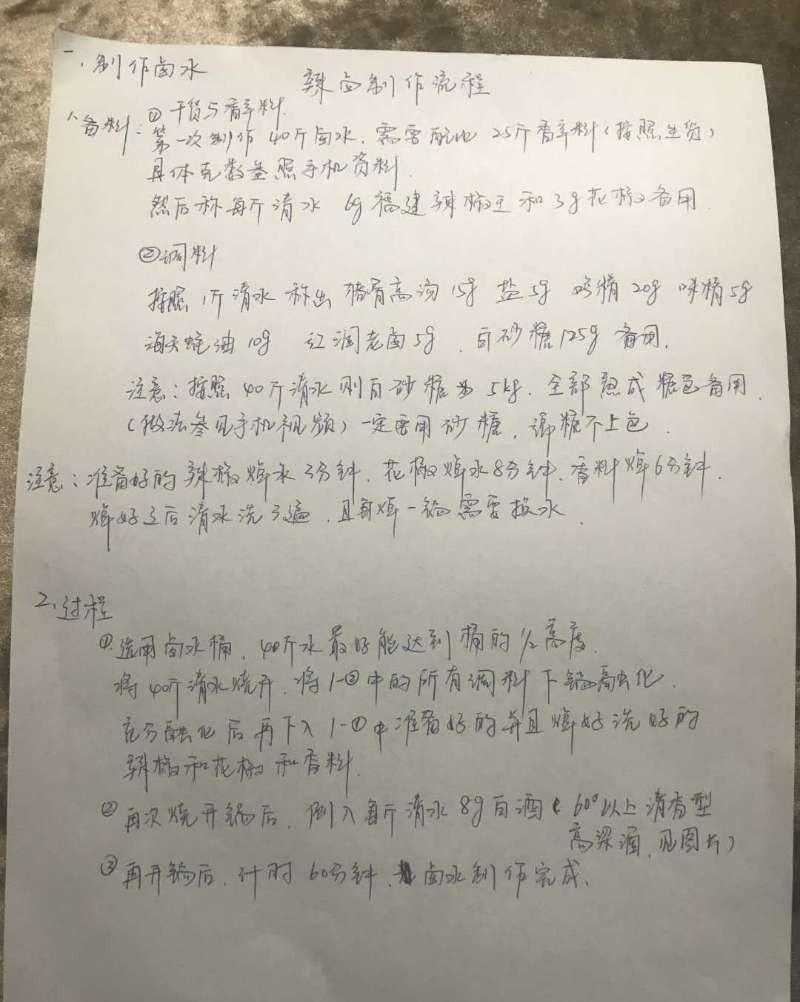 辣卤制作流程
一、制作卤水
1、备料：① 干货与香辛料
第一次制作40斤卤水，需要配比25斤香辛料（按照生货）
具体克数参照手机资料
然后称每斤清水 6g福建辣椒王和3g花椒备用
②调料
按照1斤清水称出猪骨高汤15g 盐5g 鸡精20g 味精5g
海天蚝油10g 红润老卤5g，白砂糖125g备用。
注意：按照40斤清水则白砂糖为5kg，全部熬成糖色备用，
（做法参见手机视频）一定要用砂糖，绵糖不上色
注意：准备好的辣椒焯水3分钟，花椒焯水8分钟，香料焯6分钟，
焯好之后清水洗3遍，且每焯一锅需要换水
2、过程
①选用卤水桶，40斤水最好能达到桶的1/2高度，
将40斤清水烧开，将1-②中的所有调料下锅融化，
充分融化后再下入1-①中准备好的并且焯好洗好的
辣椒和花椒和香料
②再次烧开锅后，倒入每斤清水8g白酒（60°以上清香型
高粱酒，见图片）
③再开锅后，计时60分钟，卤水制作完成、